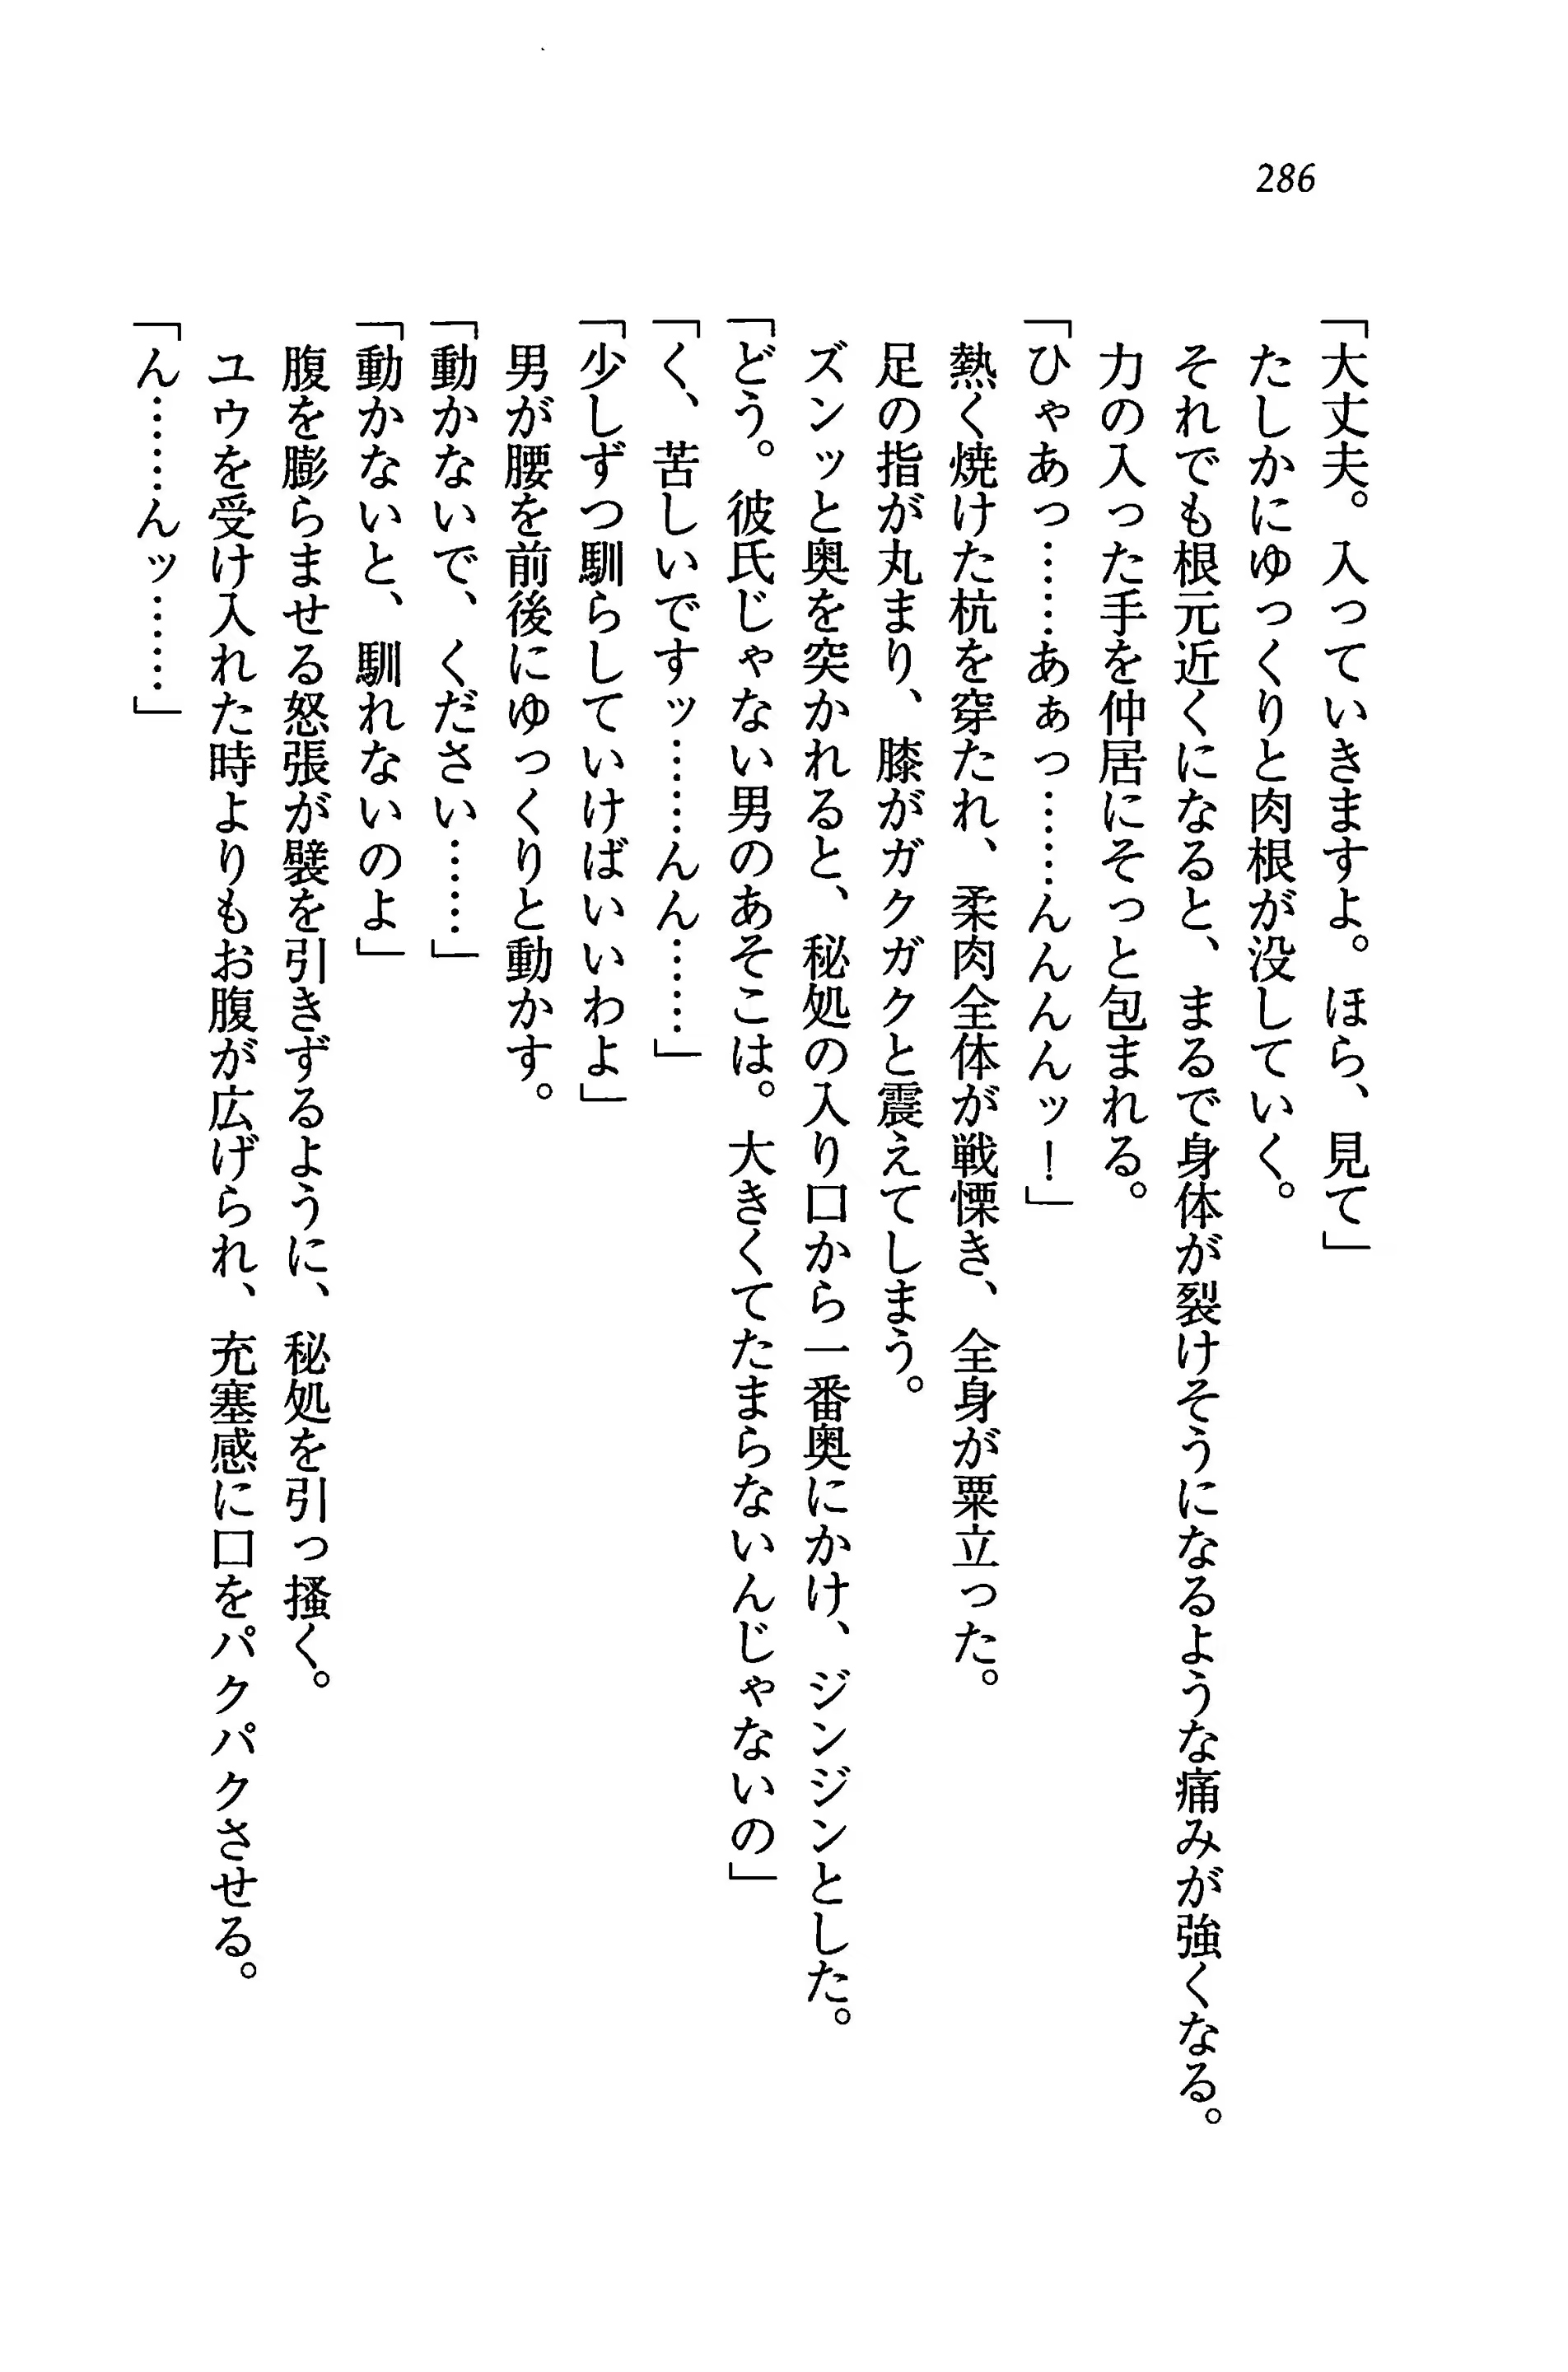 286
「大丈夫。入っていきますよ。ほら、見て」
たしかにゆっくりと肉根が没していく。
それでも根元近くになると、まるで身体が裂けそうになるような痛みが強くなる。
力の入った手を仲居にそっと包まれる。
「ひゃあっ……あぁっ……んんんんッ！」
熱く焼けた杭を穿たれ、柔肉全体が戦慄き、全身が粟立った。
足の指が丸まり、膝がガクガクと震えてしまう。
ズンッと奥を突かれると、秘処の入り口から一番奥にかけ、ジンジンとした。
「どう。彼氏じゃない男のあそこは。大きくてたまらないんじゃないの」
「く、苦しいですッ……んん……」
「少しずつ馴らしていけばいいわよ」
男が腰を前後にゆっくりと動かす。
「動かないで、ください……」
「動かないと、馴れないのよ」
腹を膨らませる怒張が襞を引きずるように、秘処を引っ掻く。
ユウを受け入れた時よりもお腹が広げられ、充塞感に口をパクパクさせる。
「ん……んッ……」